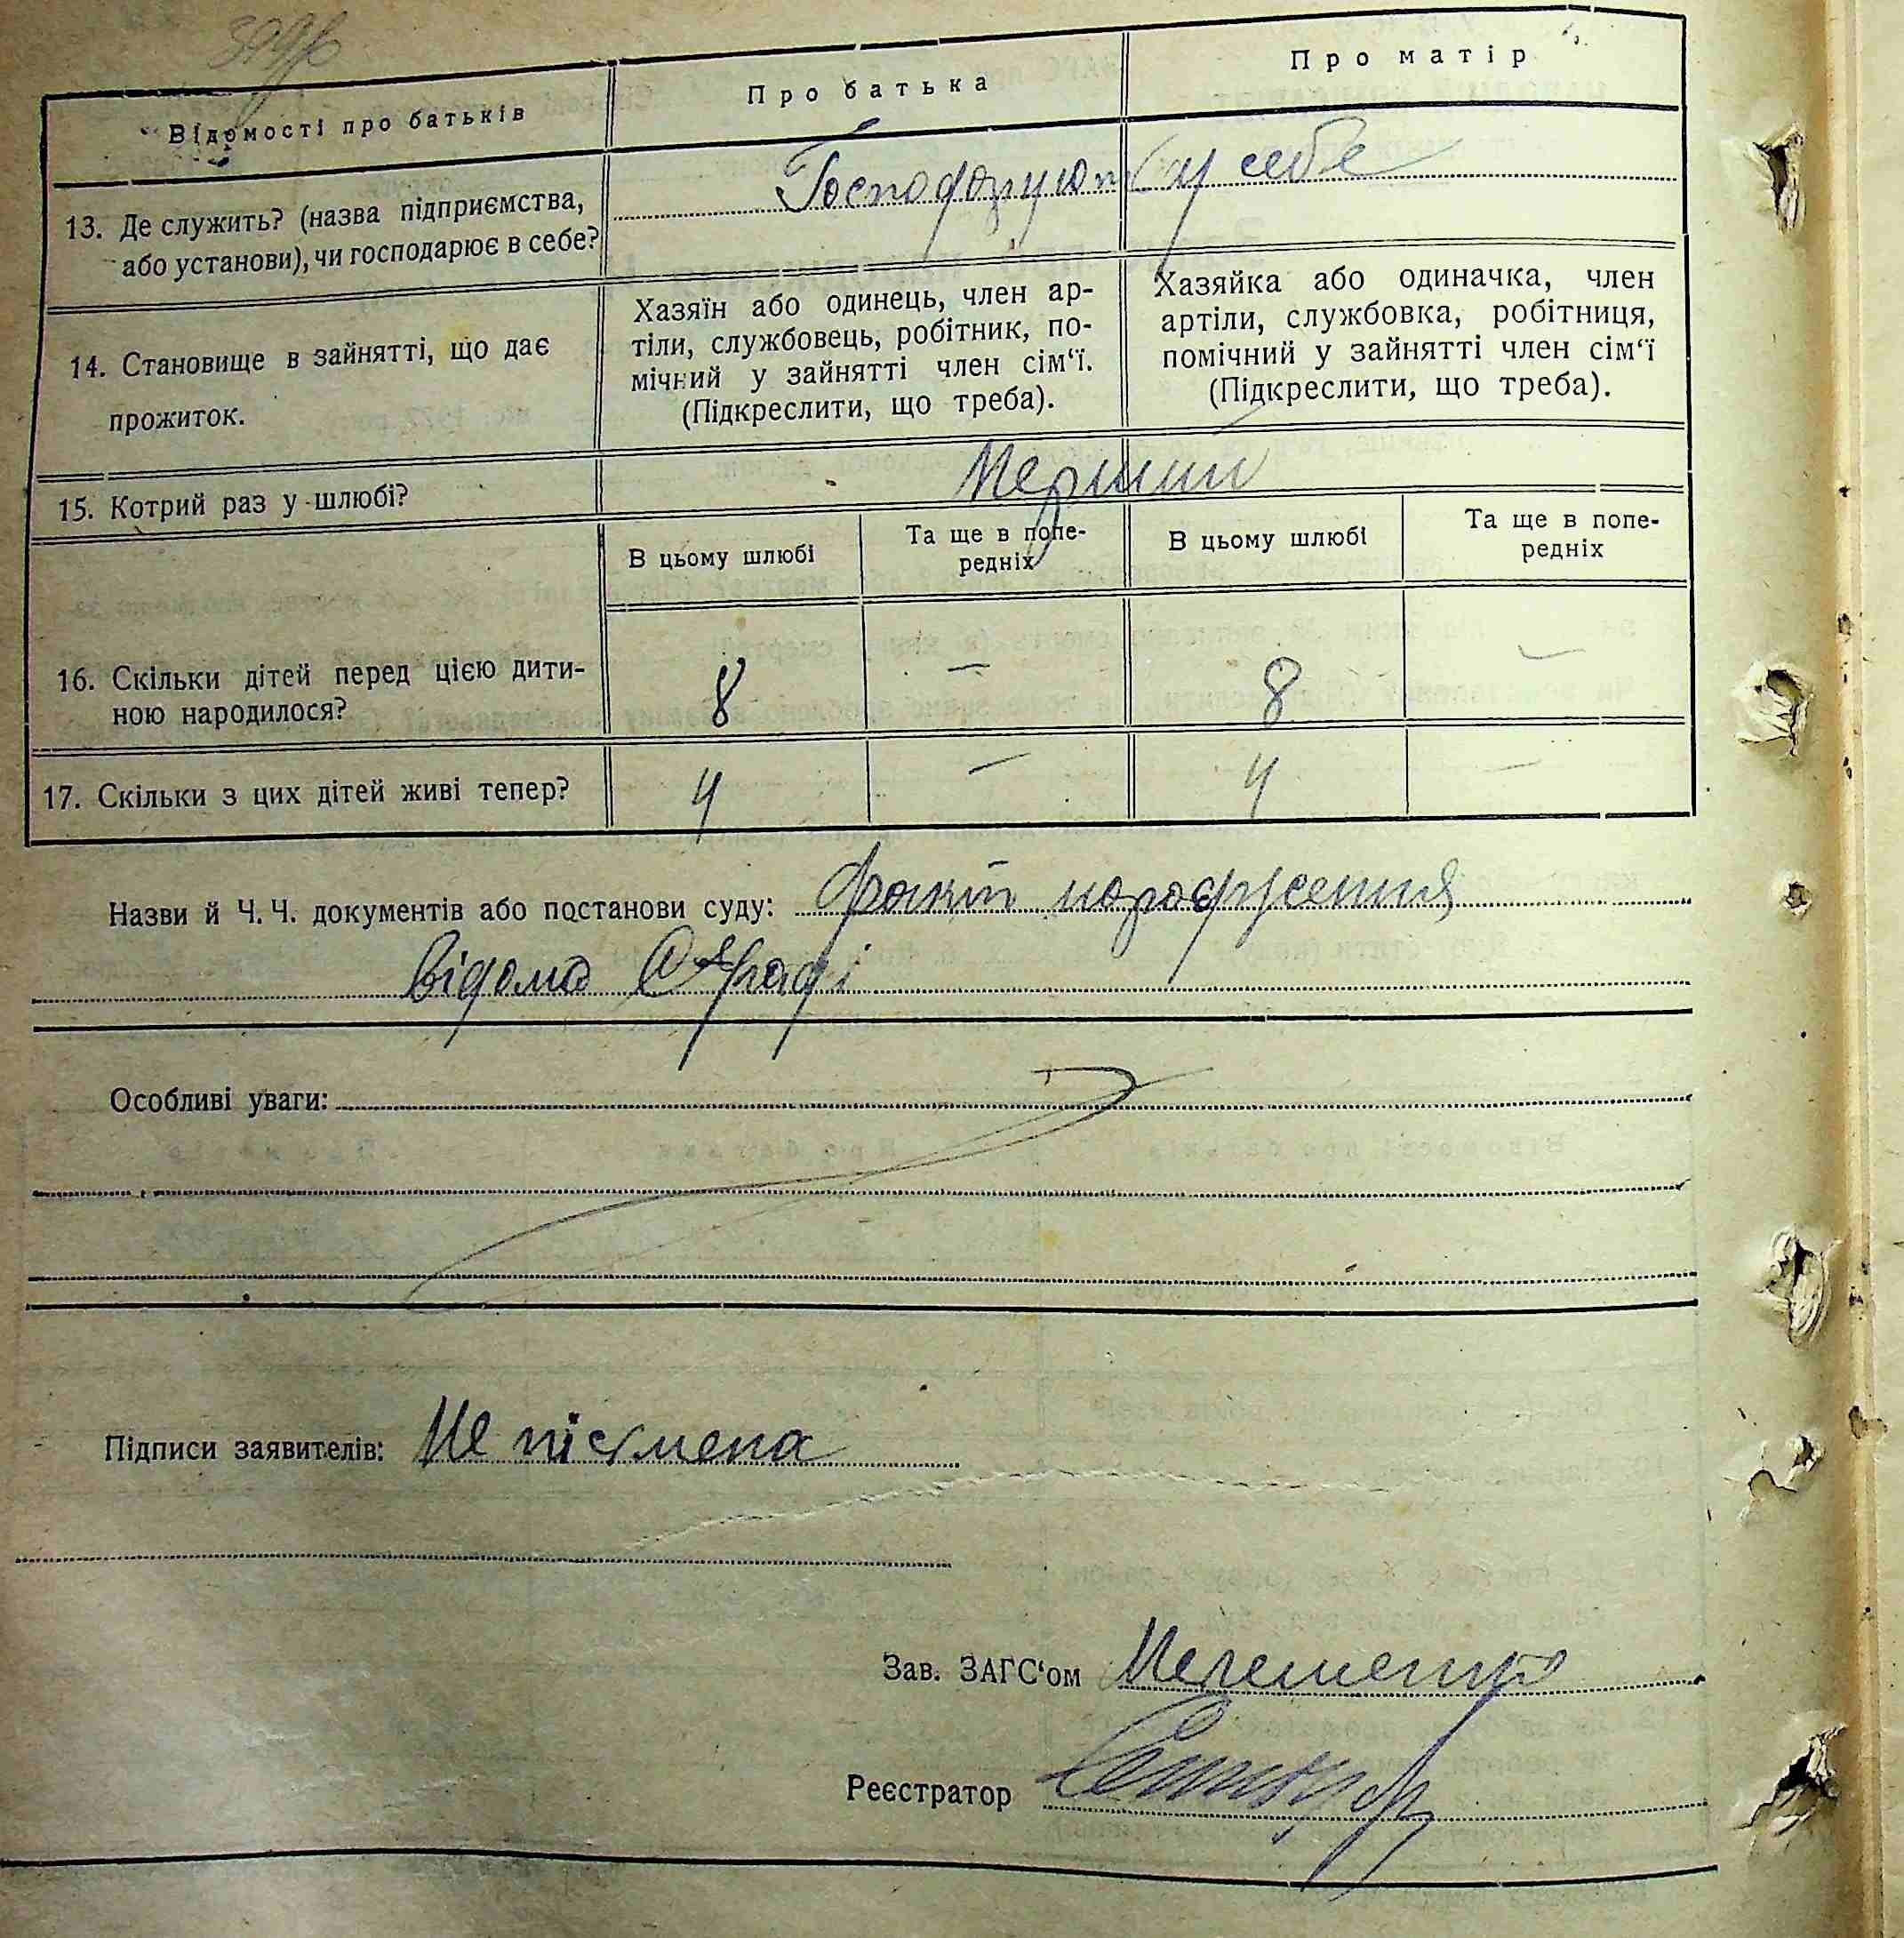 Відомості про батьків
Про батька
Про матір
13. Де служить? (назва підприємства,
або установи), чи господарює в себе?
Господарують у себе
14. Становище в зайнятті, що дає
прожиток.
Хазяїн або одинець, член ар-
тіли, службовець, робітник, по-
мічний у зайнятті член сім‘ї.
(Підкреслити, що треба).
Хазяйка або одиначка, член
артіли, службовка, робітниця,
помічний у зайнятті член сім‘ї
(Підкреслити, що треба).
15. Котрий раз у шлюбі?
Перший
В цьому шлюбі
Та ще в попе-
редніх
В цьому шлюбі
Та ще в попе-
редніх
16. Скільки дітей перед цією дити-
ною народилося?
8 — 8 —
17. Скільки з цих дітей живі тепер?
4 — 4 —
Назви й Ч. Ч. документів або постанови суду: факт народження
відома С/Раді
Особливі уваги:
Підписи заявителів: Не пісьмена
Зав. ЗАГС‘ом
Реєстратор